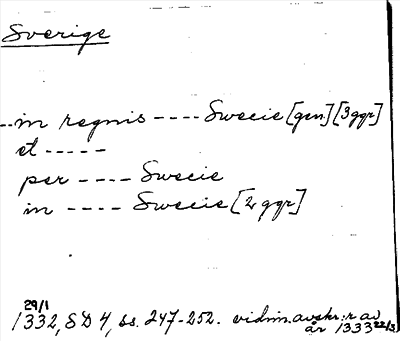 Sverige
--in regnis ---- Swecie [gen] [3 ggr]
et -----
per ---- Swecie
in ---- Swecie [2 ggr]
29/1
1332, SD 4, ss. 247-252. vidim.avskr:r av
år 1333 22/3